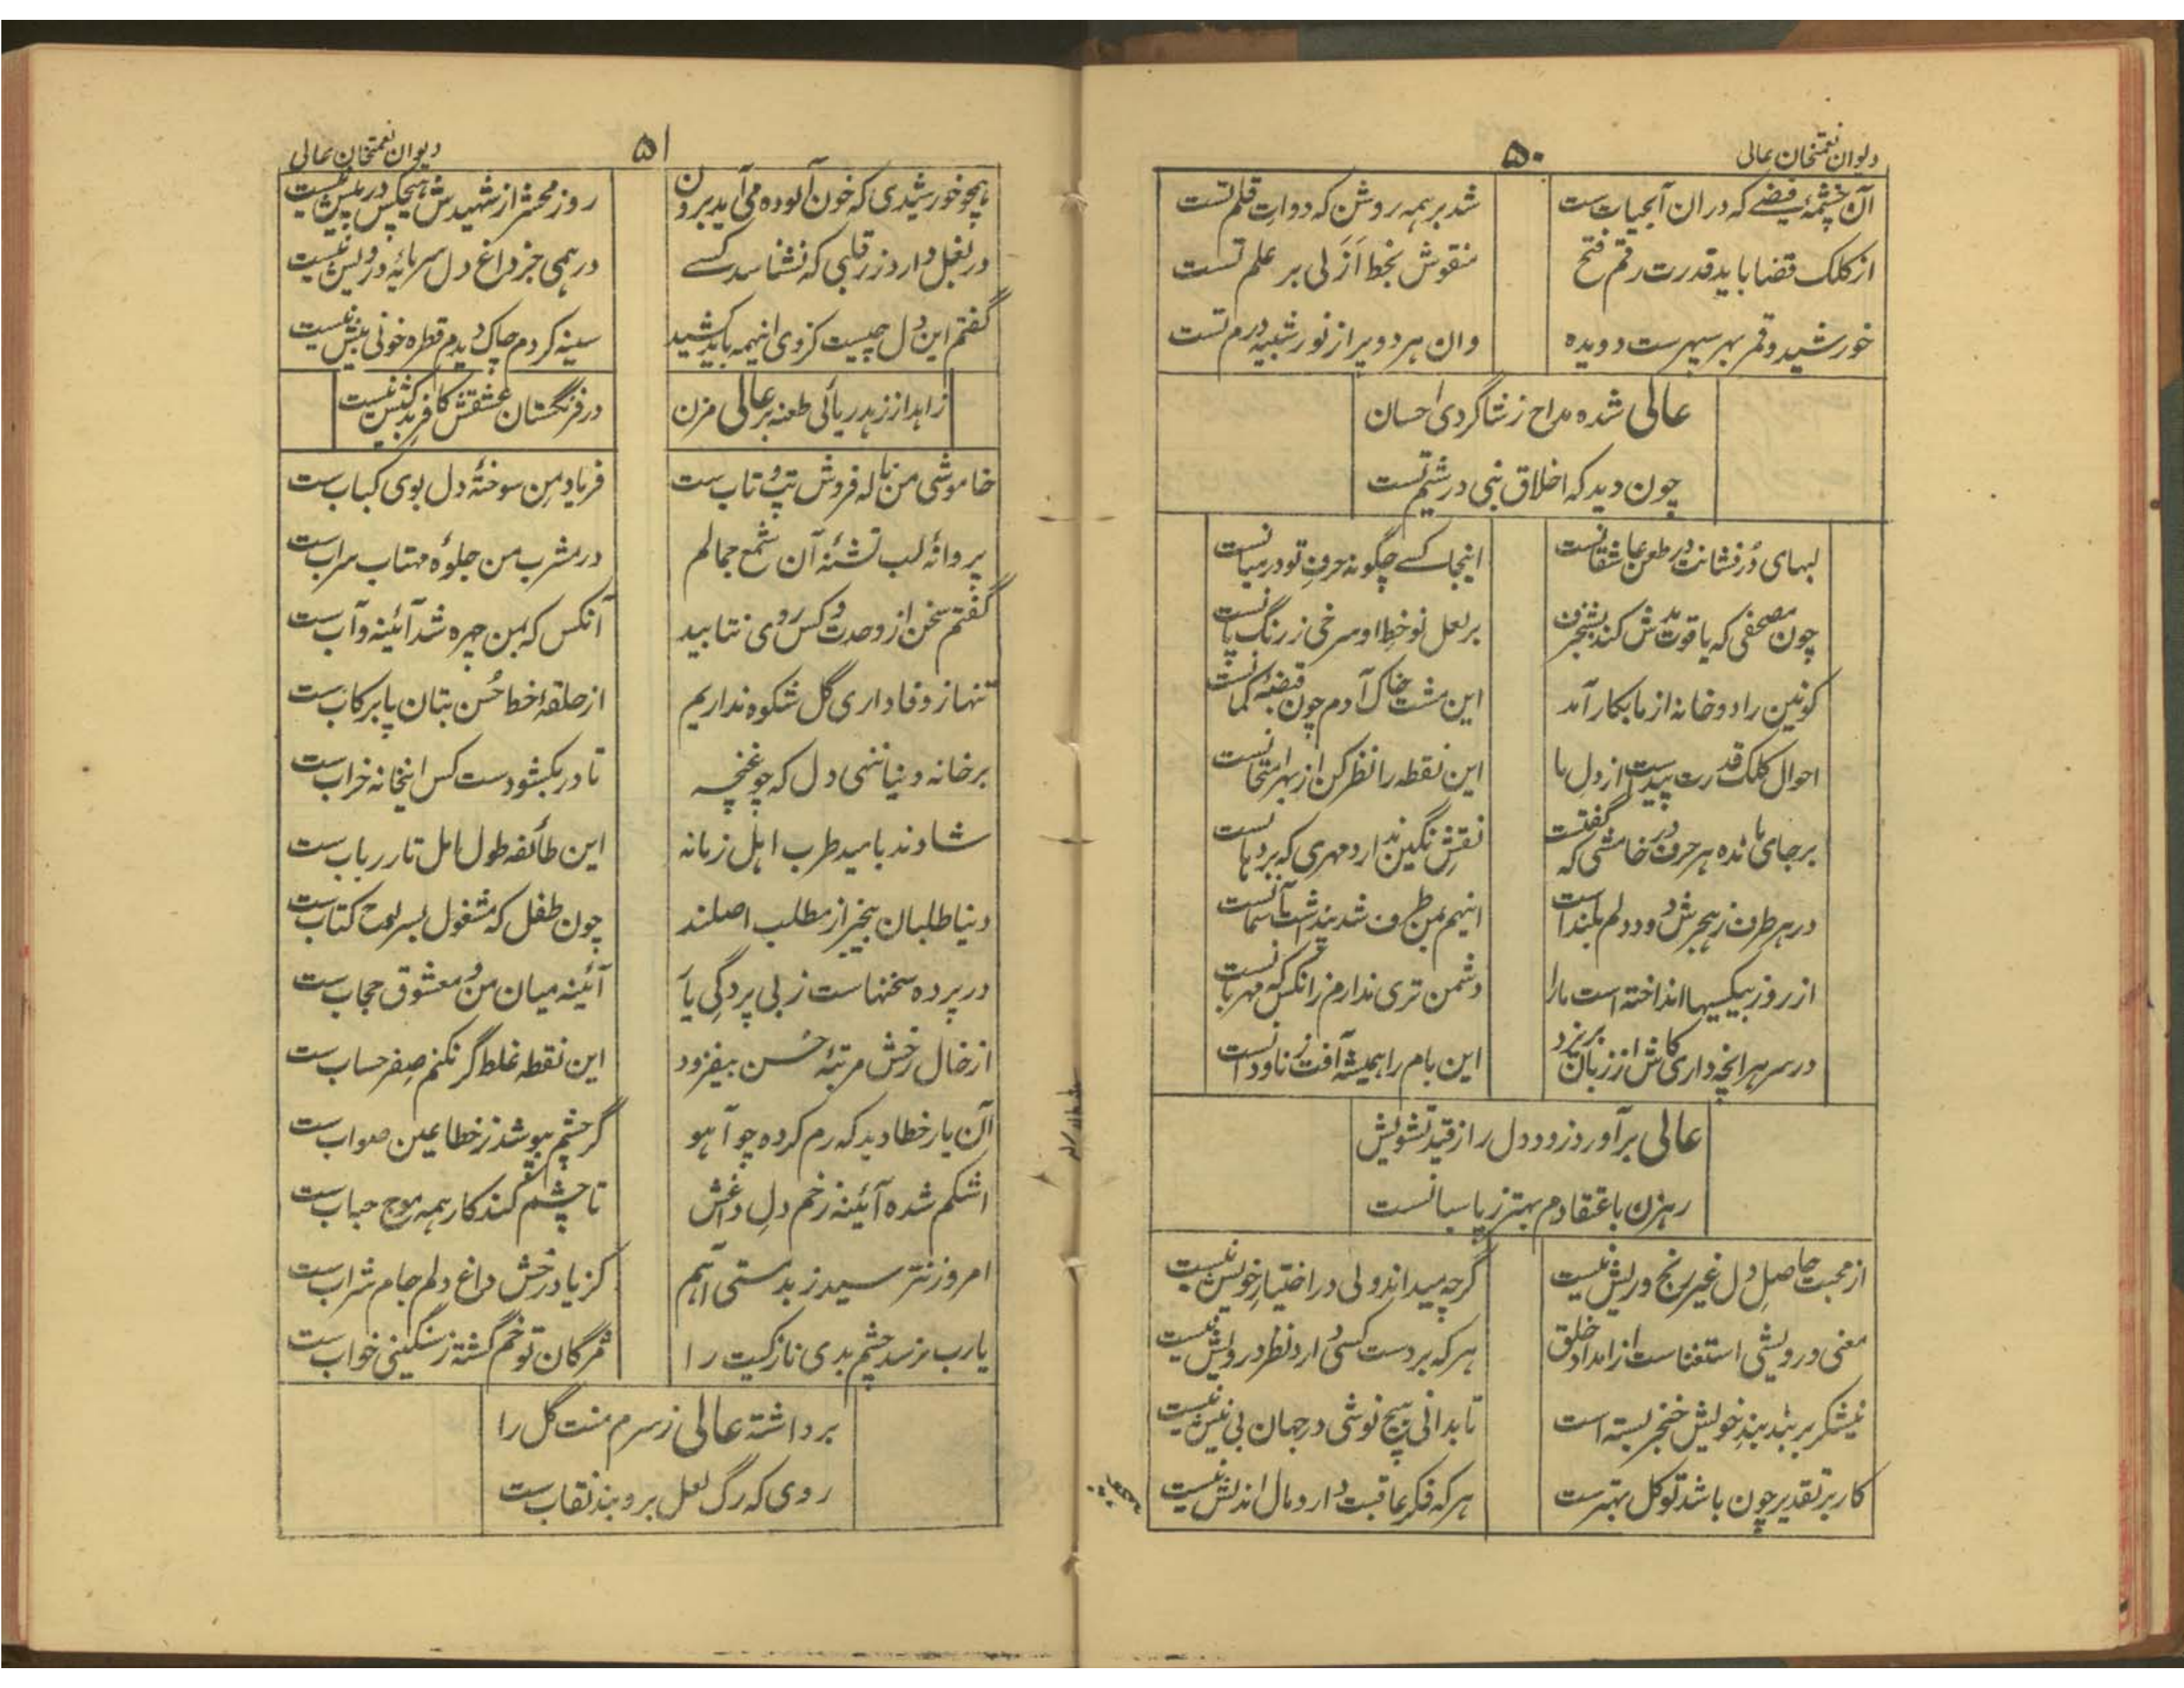 دیوان نعمتخان عالی
۵۰
آن چشمهٔ فیضے که دران آبحیات ست
شد بر همه روشن که دوات قلم تست
از کلک قضا باید قدرت رقم فتح
منقوش بخط اَزَلی بر علم تست
خورشید و قمر بهر سپهرست دویده
وان هر دو پر از نور شبیه درم تست
عالی شده مداح ز شاگردی احسان
چون دید که اخلاق نبی در شیم تست
لبهای دُرفشانت در طعن عاشقانست
اینجا کسے چگونه حرف تو در میانست
چون مصحفی که یاقوت مدش کند بشنجرف
بر لعل نو خط او سرخی ز رنگ پانست
کونین را دو خانه از ما بکار آمد
این مشت خاک آدم چون قبضهٔ کمانست
احوال کلک قدرت پیداست از دل ما
این نقطه را نظر کن از بهر امتحانست
بر جای مانده هر حرف در خامشی که گفتست
نقش نگین ندارد مهری که بر دهانست
در هر طرف ز هجرش دود دلم بلند است
اینهم بمن طرف شد پنداشت آسمانست
از روز بیکسیها انداخته است ما را
دشمن تری ندارم زانکس که مهربانست
در سر هر انچه داری کاش از زبان بریزد
این بام را همیشه آفت ز ناودانست
عالی برآور د زود دل را ز قید تشویش
رهزن باعتقادم بهتر ز پاسبانست
از محبت حاصل دل غیر رنج و ریش نیست
گرچه میداند ولی در اختیار خویش نیست
معنی درویشی استغناست از امداد خلق
هر که بر دست کسی دارد نظر درویش نیست
نیشکر بر بند بند خویش خنجر بسته است
تا بدانی هیچ نوشی در جهان بی نیش نیست
کار بر تقدیر چون باشد توکل بهترست
هر که فکر عاقبت دارد مآل اندیش نیست
دیوان نعمتخان عالی
۵۱
همچو خورشیدی که خون آلوده می آید برون
روز محشر از شهیدش هیچکس در پیش نیست
در بغل دارد زر قلبی که نشناسد کسے
درهمی جز داغ دل سرمایهٔ درویش نیست
گفتم این دل چیست کز وی اینهمه باید کشید
سینه کردم چاک دیدم قطره خونی بیش نیست
زاهد از زهد ریائی طعنه بر عالی مزن
در فرنگستان عشقش کافر بد کیش نیست
خاموشی من ناله فروش تب و تاب ست
فریاد من سوختهٔ دل بوی کباب ست
پروانهٔ لب تشنهٔ آن شمع جمالم
در مشرب من جلوهٔ مهتاب سراب ست
گفتم سخن از وحدت و کس روی نتابید
آنکس که بمن چهره شد آئینه و آب ست
تنها ز وفاداری گل شکوه نداریم
از حلقهٔ خط حُسن بتان پا برکاب ست
بر خانه دنیا ننهی دل که چو غنچه
تا در بکشود ست کس اینخانه خراب ست
شادند بامید طرب اهل زمانه
این طائفه طول امل تار رباب ست
دنیا طلبان بیخبر از مطلب اصلند
چون طفل که مشغول بسر لوح کتاب ست
در پرده سخنهاست ز بی پردگی یار
آئینه میان من و معشوق حجاب ست
از خال رخش مرتبهٔ حُسن بیفزود
این نقطه غلط گر نکنم صفر حساب ست
آن یار خطا دید که رم کرده چو آهو
گر چشم بپوشد ز خطا عین صواب ست
اشکم شده آئینهٔ زخم دل داغش
تا چشم کند کار همه موج حباب ست
امروز نترسید ز بدمستی آهم
کز یاد رخش داغ دلم جام شراب ست
یارب نرسد چشم بدی نازکیت را
مژگان تو خم گشته ز سنگینی خواب ست
برداشته عالی ز سرم منت گل را
روی که رگ لعل برو بند نقاب ست